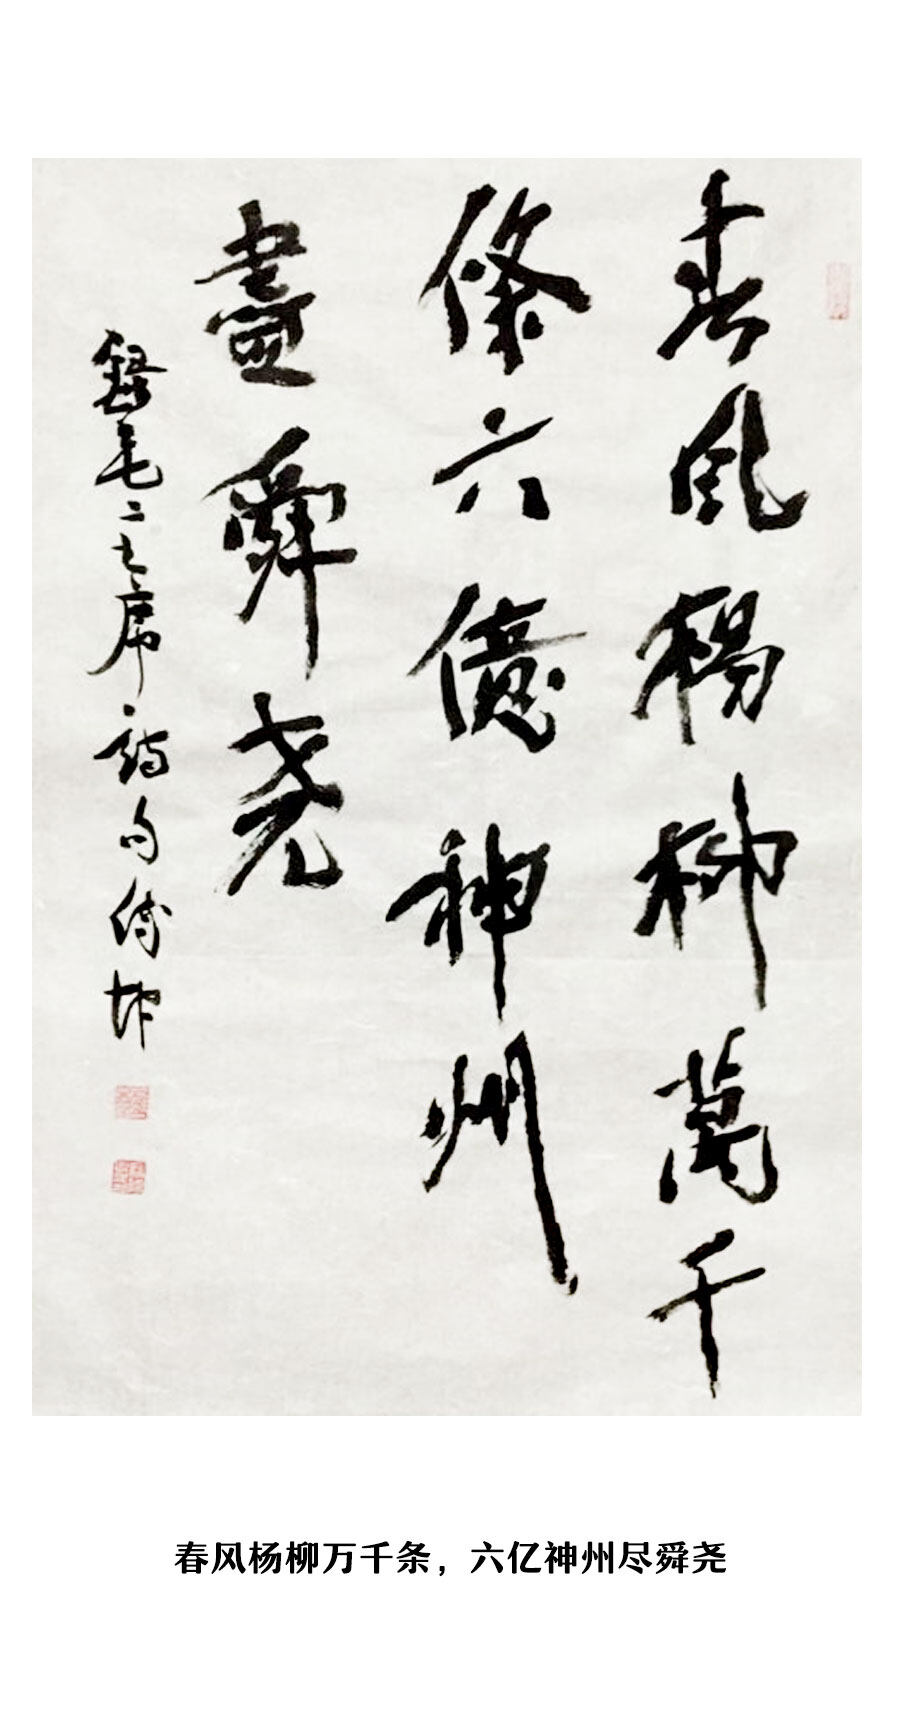 春風楊柳萬千
條六億神州
盡舜堯
錄毛主席詩句 倚坤
春风杨柳万千条，六亿神州尽舜尧